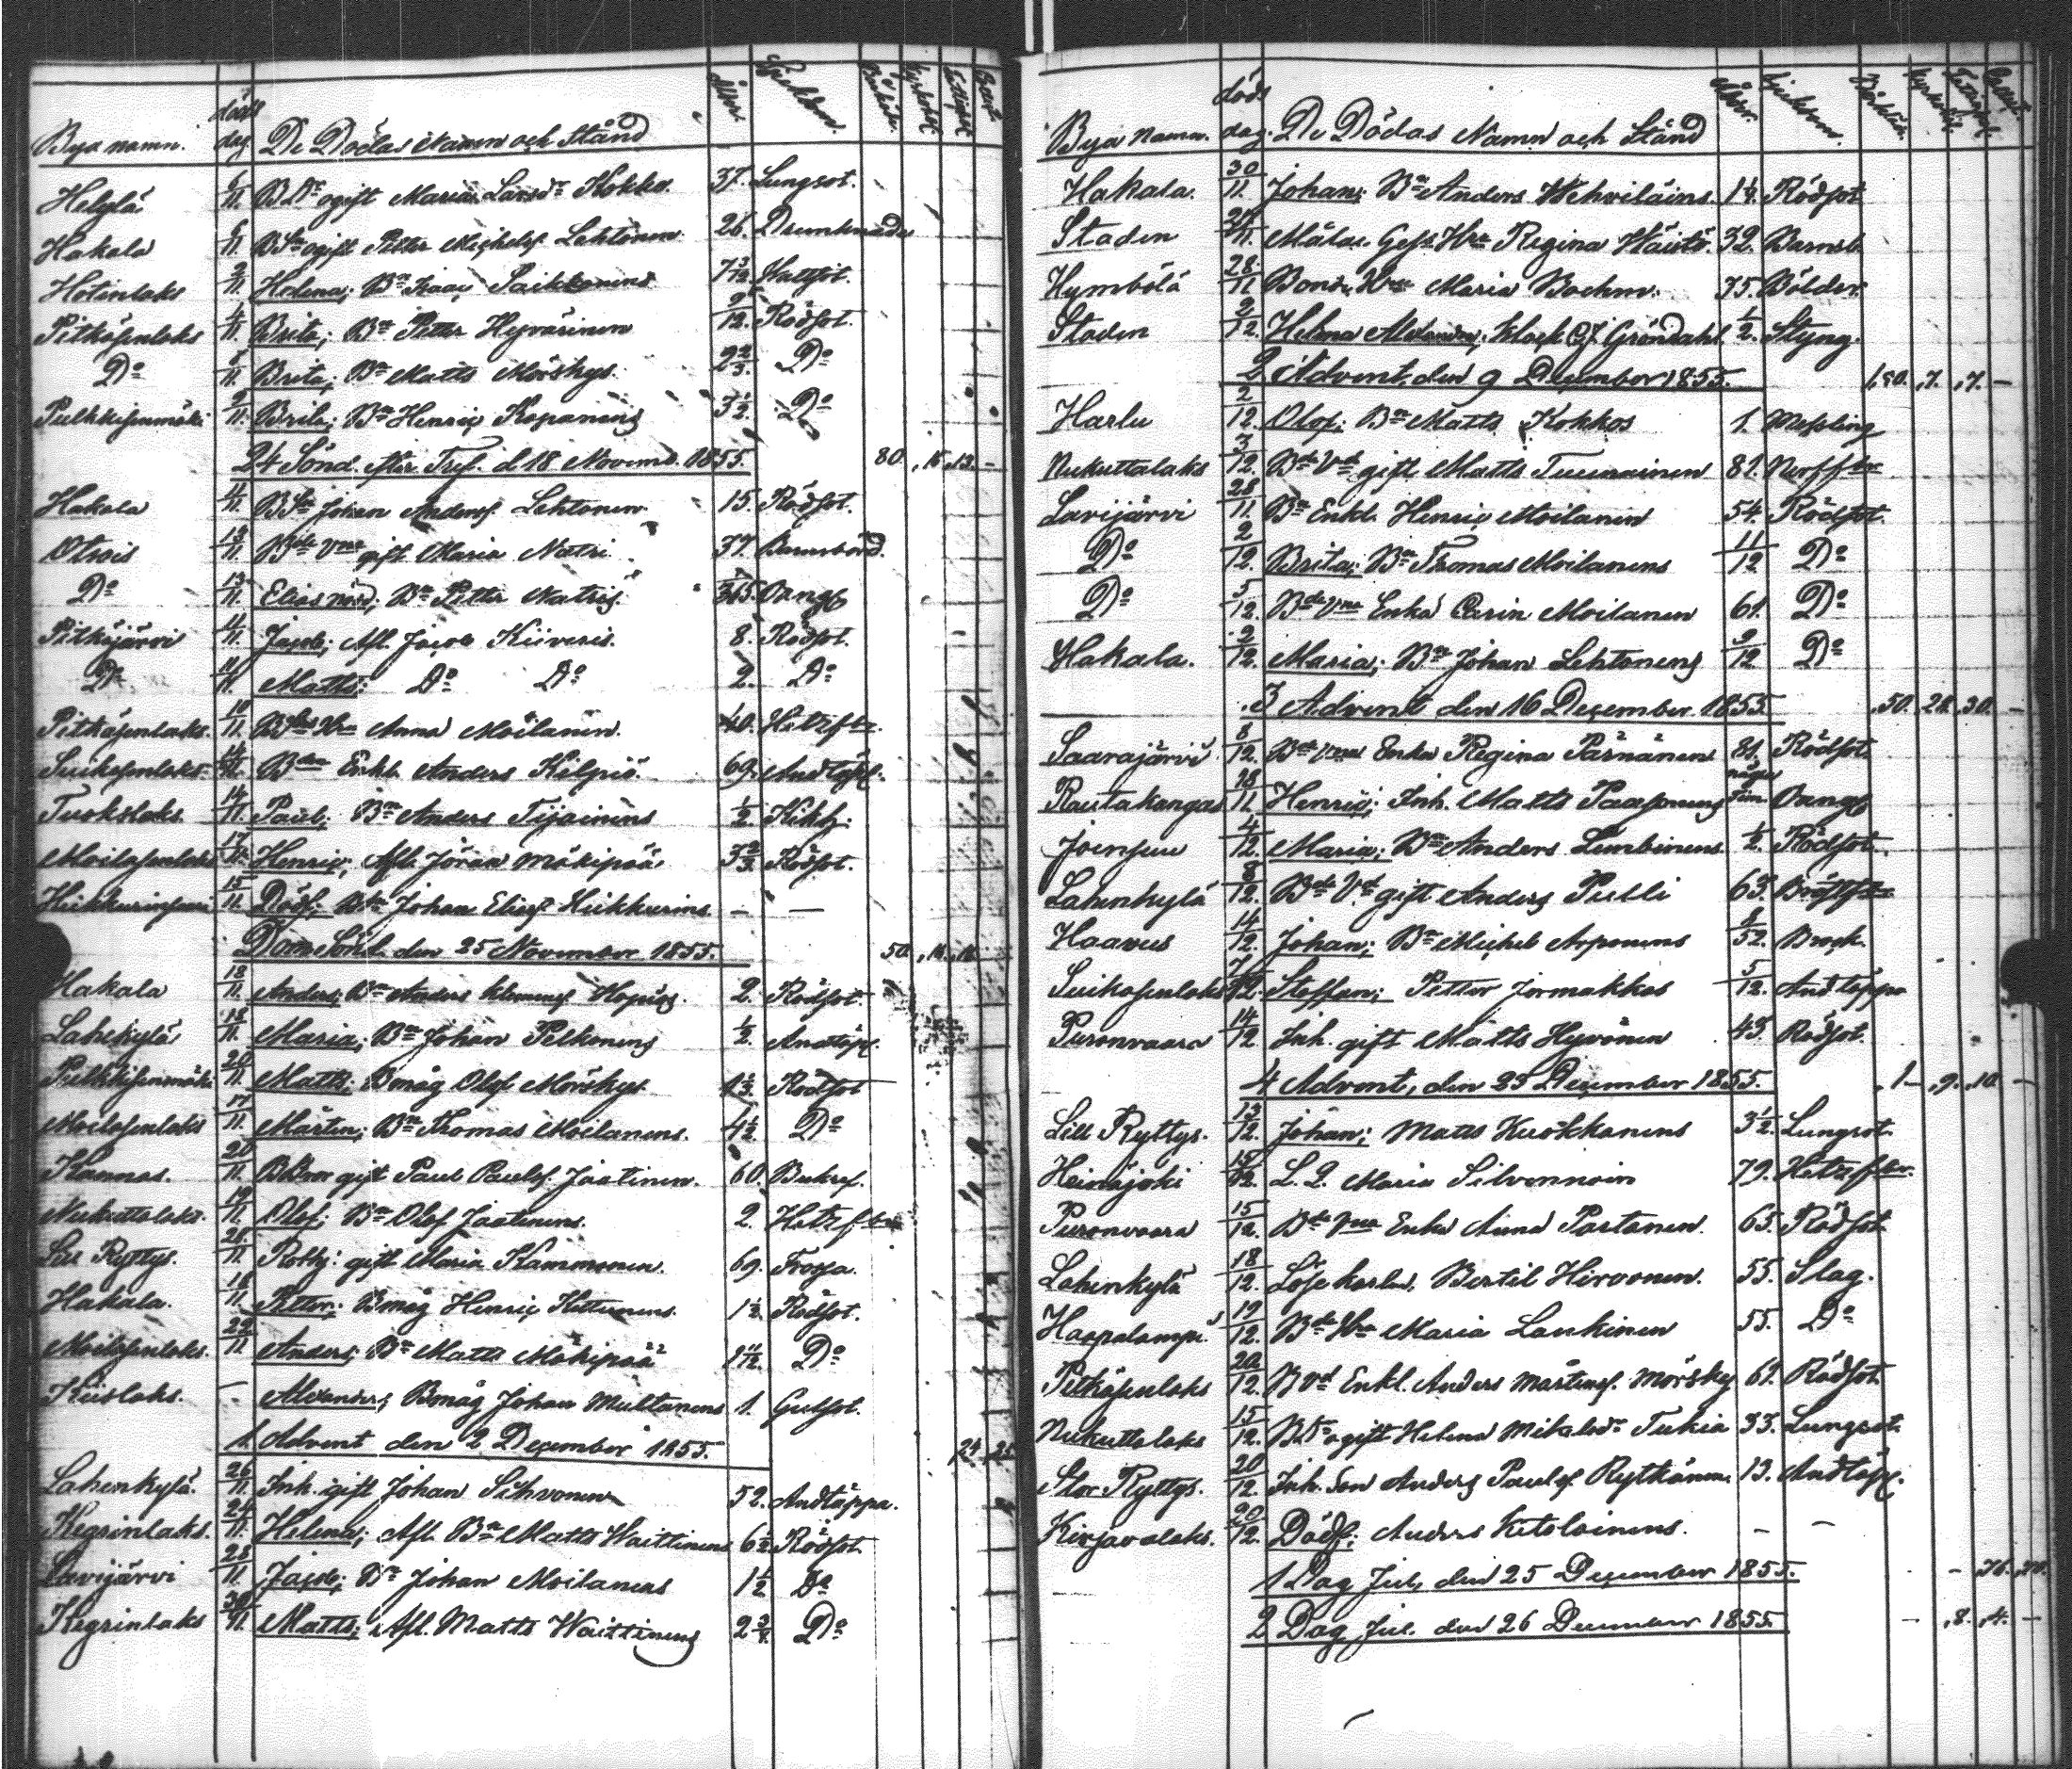 Bya namn. döds dag. De Dödas Namn och Stånd ålder Sjukdom.
Helylä 6/11 BDr ogift Maria Larsdr Kokko 37. Lungsot.
Hakala 6/11 BSn ogift Petter Michelsf. Lehtonen 26. Drunknade
Hotinlaks 2/11 Helena; Bn Isaac Paikkonens 7 3/12 Hallsot.
Pitkäsenlaks 4/11 Brita; Bn Petter Hyvärinen 9/12. Rödsot.
Do 8/11 Brita; Bn Matts Mörskys. 2 2/3. Do
Pulkkisenmäki 9/11. Brita; Bn Henric Kopanens 3 1/2. Do
24 Sönd. efter Tref. d 18 Novemb. 1855. 80. ,15 ,13. -
Hakala 11/11. BSn Johan Andersf. Lehtonen. 15. Rödsot.
Otsois 13/11. Bde Vna gift Maria Natri 37. Barnsbörd.
Do 13/11. Elias nöd; Bn Petter Natris. /365. Oangf
Pitkäjärvi 11/11. Jacob; Afl. Jacob Kiiveris. 8. Rödsot.
Do 11/11. Matts; Do Do 2. Do
Pitkäsenlaks 10/11. Hu Anna Moilanen. 40. Hetzfbr.
Suikasenlaks 14/11. Bden Enkl. Anders Kilpiö. 69. Andtäpf.
Tuokslaks 14/11. Paul; Bn Anders Tijainens 1/2. Kikh.
Moilasenlaks 17/11. Henric; Afl. Jöran Mäkipää 3 2/3. Rödsot.
Hiekkurinsuu 15/11. Dödf; Bn Johan Eliasf. Hiekkurins - -
Domssönd. den 25 November 1855. 50. ,16. ,16.
Hakala 18/11. Anders; Bn Anders Klemetsf. Hopias 2. Rödsot.
Lahenkylä 18/11. Maria; Bn Johan Pelkonens 1/2. Andtäpf.
Pulkkisenmäki 20/11. Matts; Bmåg Olof Mörskys. Rödsot
Moilasenlaks 17/11. Mårten; Bn Thomas Moilanens. 4 1/2. Do
Kannas. 20/11. BBror gift Paul Paulsf. Jaatinen. 60. Bukref.
Nukuttalaks. 19/11. Olof; Bn Olof Jaatinens. 2. Hetzfbr
Lill Ryttys. 25/11. Rothj: gift Maria Kammonen. 69. Frossa.
Hakala. 16/11. Petter; Bmåg Henric Kettunens. 1 1/2. Rödsot.
Moilasenlaks. 22/11. Anders; Bn Matts Mäkipää 1 11/12. Do
Kiislaks. - Alexander; Bmåg Johan Multanens 1. Gulsot.
1. Advent den 2 December 1855. 24. 25.
Lahenkylä. 26/11. Inh. gift Johan Sihvonen 52. Andtäppa.
Kegrinlaks. 24/11. Helena; Afl. Bn Matts Waittinens 6 1/2 Rödsot
Lavijärvi 28/11. Jacob; Bn Johan Moilanens 1 1/2 Do
Kegrinlaks 30/11. Matts; Afl. Matts Waittinens 2 3/4. Do
Bya Namn. döds dag. De Dödas Namn och Stånd ålder. Sjukdom.
Hakala. 30/11. Johan; Bn Anders Wehviläins. 1 1/4. Rödsot
Staden 24/11. Målar. Ges. Hu Regina Häistö. 32. Barnsb.
Hymbölä 28/11. Bond. Hu Maria Boehm. 75. Bölder.
Staden 2/12. Helena Alexandra; Klock CJ. Gröndahl. 1/2. Styng.
2 Advent, den 9 December 1855. 1,80. ,7. ,7. -
Harlu 2/12. Olof; Bn Matts Kokkos 1. Messling
Nukuttalaks 3/12. Bde Vd gift Matts Tuunainen 81. Nerffbr
Lavijärvi 28/11. Bn Enkl. Henric Moilanen 54. Rödsot.
Do 2/12. Brita; Bn Thomas Moilanens 11/12 Do
Do 5/12. Bde Vna Enka Carin Moilanen 61. Do
Hakala. 2/12. Maria; Bn Johan Lehtonens 9/12 Do
3 Advent den 16 December 1855. ,50. ,28. ,30. -
Saarajärvi 8/12. Bde Vna Enka Regina Pärnänen 81. Rödsot.
Rautakangas 28/11. Henric; Inh. Matts Paasonens några tim. Oangf
Joensuu 4/12. Maria; Bn Anders Lembinens. 1/2. Rödsot.
Lahenkylä 8/12. Bde Vd gift Anders Pulli 63. Bröstfbr
Haavus 14/12. Johan; Bn Michel Arponens 8/52. Brock.
Suikasenlaks 7/12. Staffan; Petter Jormakkas 5/12. Andtäppa
Puronvaara 14/12 Inh. gift Matts Hyvönen 43. Rödsot.
4 Advent, den 23 December 1855. ,1- ,9. ,10. -
Lill Ryttys. 13/12. Johan; Matts Kuokkanens 3 1/2. Lungsot.
Heinäjoki 15/12. L. Q. Maria Silvennoin 79. Hetzfbr.
Puronvaara 15/12. Bde Vna Enka Anna Partanen. 65. Rödsot.
Lahenkylä 18/12. Lösekarlen Bertil Hirvonen. 55. Slag.
Haapalampi. 19/12. Bde Hu Maria Laukinen 55. Do
Pitkäsenlaks 20/12. BVd Enkl. Anders Mårtensf. Mörsky 61. Rödsot
Nukuttalaks 15/12. BDr ogift Helena Mikelsdr Tukia 33. Lungsot.
Stor Ryttys. 20/12. Inh. Son Anders Paulsf. Rytkönen. 13. Andtäpf.
Kirjavalaks. 20/12. Dödf; Anders Ketolainens. - -
1 Dag Jul, den 25 December 1855. - ,36. ,20.
2 Dag Jul. den 26 December 1855. - ,8. ,4. -